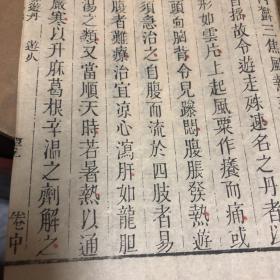 三焦風熱
自搖故令遊走殊速名之丹者以
形如雲片上起風粟作癢而痛或
頭向胸背令兒躁悶腹脹發熱遊
須急治之自腹而流於四肢者易
腹者難療治宜涼心瀉肝如龍胆
湯之類又當順天時若暑熱以通
嚴寒以升麻葛根辛溫之劑解之
遊丹 遊火
卷中